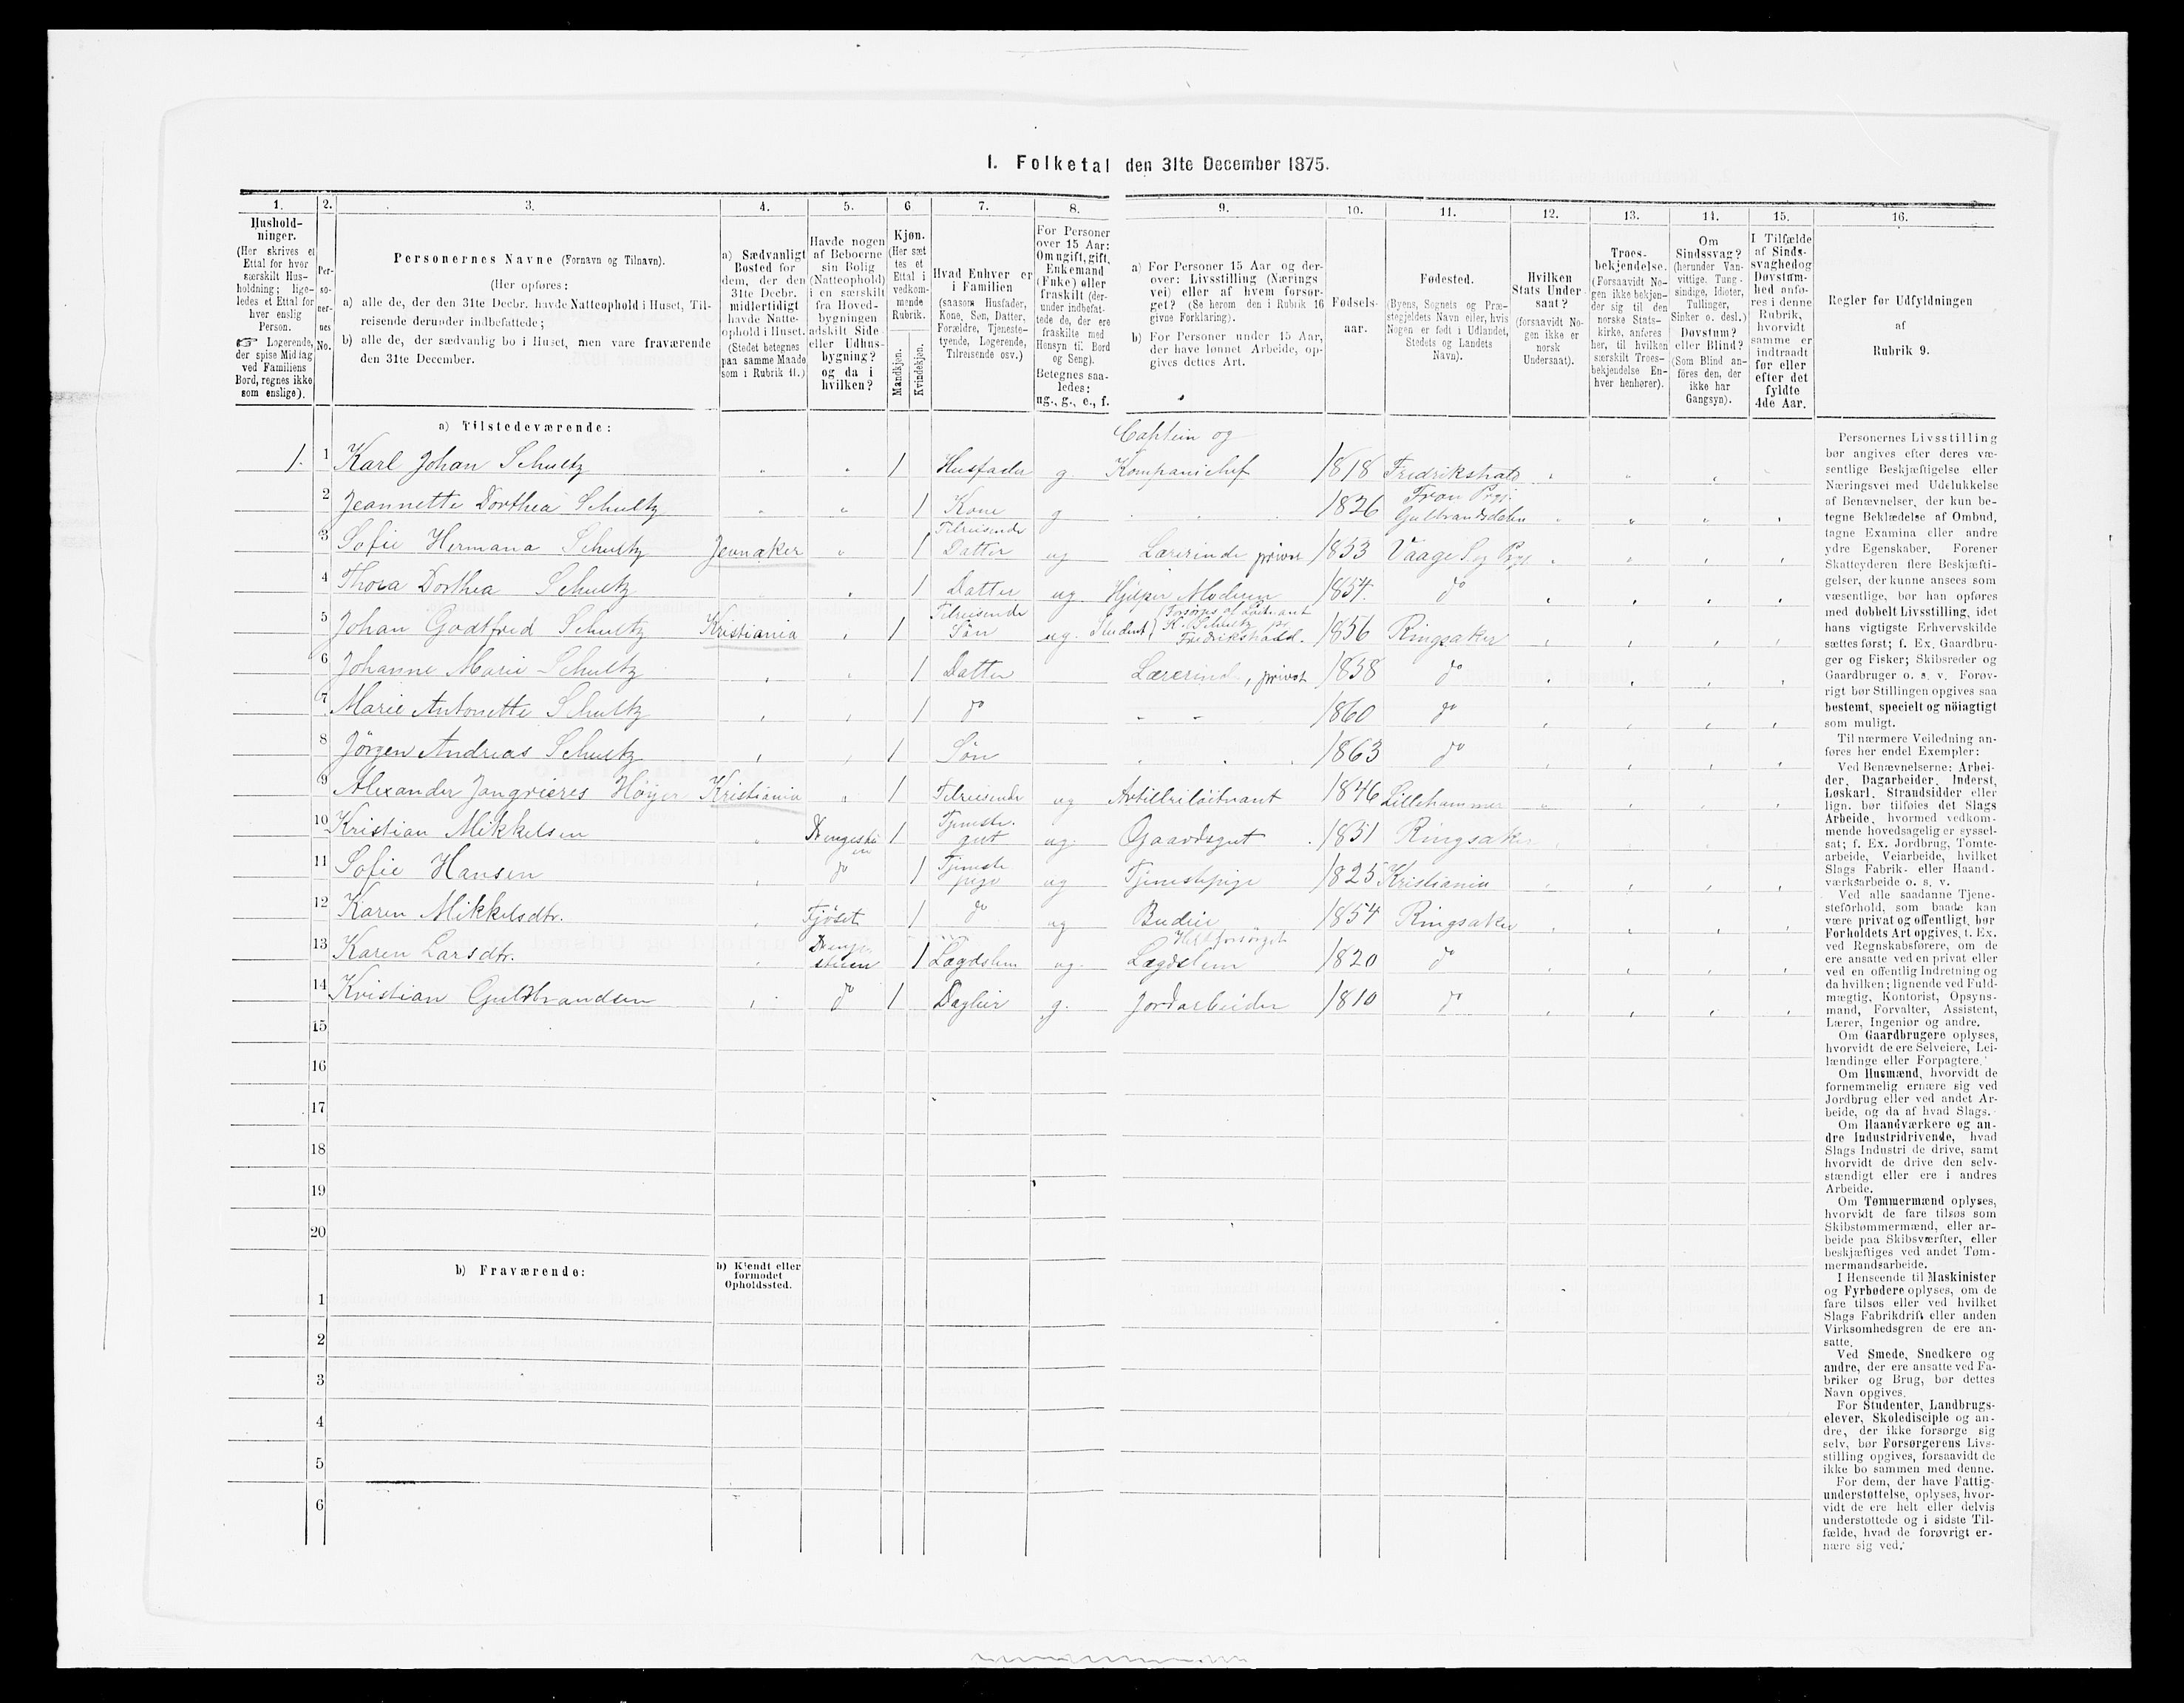 1. Folketal den 31te December 1875.
1. 2. 3. 4. 5. 6 7. 8. 9. 10. 11. 12. 13. 14. 15. 16.
Hushold-
ninger.
(Her skrives et
Ettal for hver
særskilt Hus-
holdning; lige-
ledes et Ettal for
hver enslig
Person.
☞ Logerende,
der spise Middag
ved Familiens
Bord, regnes ikke
som enslige).
Per-
so-
ner-
nes
No.
Personernes Navne (Fornavn og Tilnavn).
(Her opføres:
a) alle de, der den 31te Decbr. havde Natteophold i Huset, Til-
reisende derunder indbefattede;
b) alle de, der sædvanlig bo i Huset, men vare fraværende
den 31te December.
a) Sædvanligt
Bosted for
dem, der den
31te Decbr.
midlertidigt
havde Natte-
ophold i Huset.
(Stedet betegnes
paa samme Maade
som i Rubrik 11.)
Havde nogen
af Beboerne
sin Bolig
(Natteophold)
i en særskilt
fra Hoved-
bygningen
adskilt Side-
eller Udhus-
bygning?
og da i
hvilken?
Kjøn.
(Her sæt
tes et
Ettal i
vedkom-
mende
Rubrik.
Mandkjøn.
Kvindekjøn.
Hvad Enhver er
i Familien
(saasom Husfader,
Kone, Søn, Datter,
Forældre, Tjeneste-
tyende, Logerende,
Tilreisende osv.)
For Personer
over 15 Aar:
Om ugift, gift,
Enkemand
(Enke) eller
fraskilt (der-
under indbefat-
tede de, der ere
fraskilte med
Hensyn til Bord
og Seng).
Betegnes saa-
ledes:
ug., g., e., f.
a) For Personer 15 Aar og der-
over: Livsstilling (Nærings
vei) eller af hvem forsør-
get? (Se herom den i Rubrik 16
givne Forklaring).
b) For Personer under 15 Aar,
der have lønnet Arbeide, op-
gives dettes Art.
Fødsels-
aar.
Fødested.
(Byens, Sognets og Præ-
stegjeldets Navn eller, hvis
Nogen er født i Udlandet,
Stedets og Landets
Navn).
Hvilken
Stats Under
saat?
(forsaavidt No-
gen ikke er
norsk
Undersaat).
Troes-
bekjendelse.
(Forsaavidt No-
gen ikke bekjen-
der sig til den
norske Stats-
kirke, anføres
her, til hvilken
særskilt Troes-
bekjendelse En-
hver henhører).
Om
Sindssvag?
(herunder Van-
vittige, Tung-
sindige, Idioter,
Tullinger,
Sinker o. desl.)
Døvstum?
eller Blind?
(Som Blind an-
føres den, der
ikke har
Gangsyn).
I Tilfælde
af Sinds-
svaghed og
Døvstum-
hed anfø-
res i denne
Rubrik,
hvorvidt
samme er
indtraadt
før eller
efter det
fyldte
4de Aar.
Regler for Udfyldningen
af
Rubrik 9.
a) Tilstedeværende:
1. 1 Karl Johan Schultz " " 1 Husfader g. Captein og Kompanichef 1818 Fredrikshald
2 Jeannette Dorthea Schultz " " 1 Kone g 1826 Fron Prgj. Gulbrandsdalen
3 Sofie Hermana Schultz Jevnaker " 1 Tilreisende Datter ug Lærerinde privat 1853 Vaage
4 Thora Dorthea Schultz 1 Datter ug Hjelper Moderen 1854. do
5 Johan Godtfred Schultz Kristiania 1 Tilreisende Søn ug. Student Fredrikshald. 1856 Ringsaker
6 Johanne Marie Schultz 1 Datter Lærerind, privat 1858 do
7 Marie Antonette Schultz 1 do 1860 do
8 Jörgen Andreas Schultz 1 Søn 1863 do
9 Alexander Høyer Kristiania 1 Tilreisende ug Artilrilöitnant 1846 Lillehammer
10 Kristian Mikkelsen 1 Tjeneste gut ug. Gaardsgut 1851 Ringsaker
11 Sofie Hansen do 1 Tjeneste pige ug Tjenestepige 1825 Kristiania
12 Karen Mikkelsdtr. Fjöset 1 do ug Budeie 1854 Ringsaker
13 Karen Larsdtr. Drengestuen 1 Lægdslem ug. Helt forsörget Lægdslem 1820 do
14 Kristian Guldbrandsen do 1 Dagleir g. Jordarbeider 1810 do
15
16
17
18
19
20
b) Fraværende:
b) Kjendt eller
formodet
Opholdssted.
1
2
3
4
5
6
Personernes Livsstilling
bør angives efter deres væ-
sentlige Beskjæftigelse eller
Næringsvei med Udelukkelse
af Benævnelser, der kun be-
tegne Beklædelse af Ombud,
tagne Examina eller andre
ydre Egenskaber. Forener
Skatteyderen flere Beskjæfti-
gelser, der kunne ansees som
væsentlige, bør han opføres
med dobbelt Livsstilling, idet
hans vigtigste Erhvervskilde
sættes først; f. Ex. Gaardbru-
ger og Fisker; Skibsreder og
Gaardbruger o. s. v. Forøv-
rigt bør Stillingen opgives saa
bestemt, specielt og nöiagtigt
som muligt.
Til nærmere Veiledning an-
føres her endel Exempler:
Ved Benævnelserne: Arbei-
der, Dagarbeider, Inderst,
Løskarl, Strandsidder eller
lign. bør tilføies det Slags
Arbeide, hvormed vedkom-
mende hovedsagelig er syssel-
sat; f. Ex. Jordbrug, Tomte-
arbeide, Veiarbeide, hvilket
Slags Fabrik- eller Haand-
værksarbeide o. s. v.
Ved alle saadanne Tjene-
steforhold, som baade kan
være privat og offentligt, bør
Forholdets Art opgives, f. Ex.
ved Regnskabsførere, om de
ere ansatte ved en privat eller
ved en offentlig Indretning og
da hvilken; lignende ved Fuld-
mægtig, Kontorist, Opsyns-
mand, Forvalter, Assistent,
Lærer, Ingeniør og andre.
Om Gaardbrugere oplyses,
hvorvidt de ere Selveiere, Lei-
lændinge eller Forpagtere.
Om Husmænd, hvorvidt de
fornemmelig ernære sig ved
Jordbrug eller ved andet Ar-
beide, og da af hvad Slags.
Om Haandværkere og an-
dre Industridrivende, hvad
Slags Industri de drive, samt
hvorvidt de drive den selv-
stændigt eller ere i andres
Arbeide.
Om Tømmermænd oplyses,
hvorvidt de fare tilsøs som
Skibstømmermænd, eller ar-
beide paa Skibsværfter, eller
beskjæftiges ved andet Tøm-
mermandsarbeide.
I Henseende til Maskinister
og Fyrbødere oplyses, om de
fare tilsøs eller ved hvilket
Slags Fabrikdrift eller anden
Virksomhedsgren de ere an-
satte.
Ved Smede, Snedkere og
andre, der ere ansatte ved Fa-
briker og Brug, bør dettes
Navn opgives.
For Studenter, Landbrugs-
elever, Skoledisciple og an-
dre, der ikke forsørge sig
selv, bør Forsørgerens Livs-
stilling opgives, forsaavidt de
ikke bo sammen med denne.
For dem, der have Fattig-
understøttelse, oplyses, hvor-
vidt de ere helt eller delvis
understøttede og i sidste Til-
fælde, hvad de forøvrigt er-
nære sig ved.